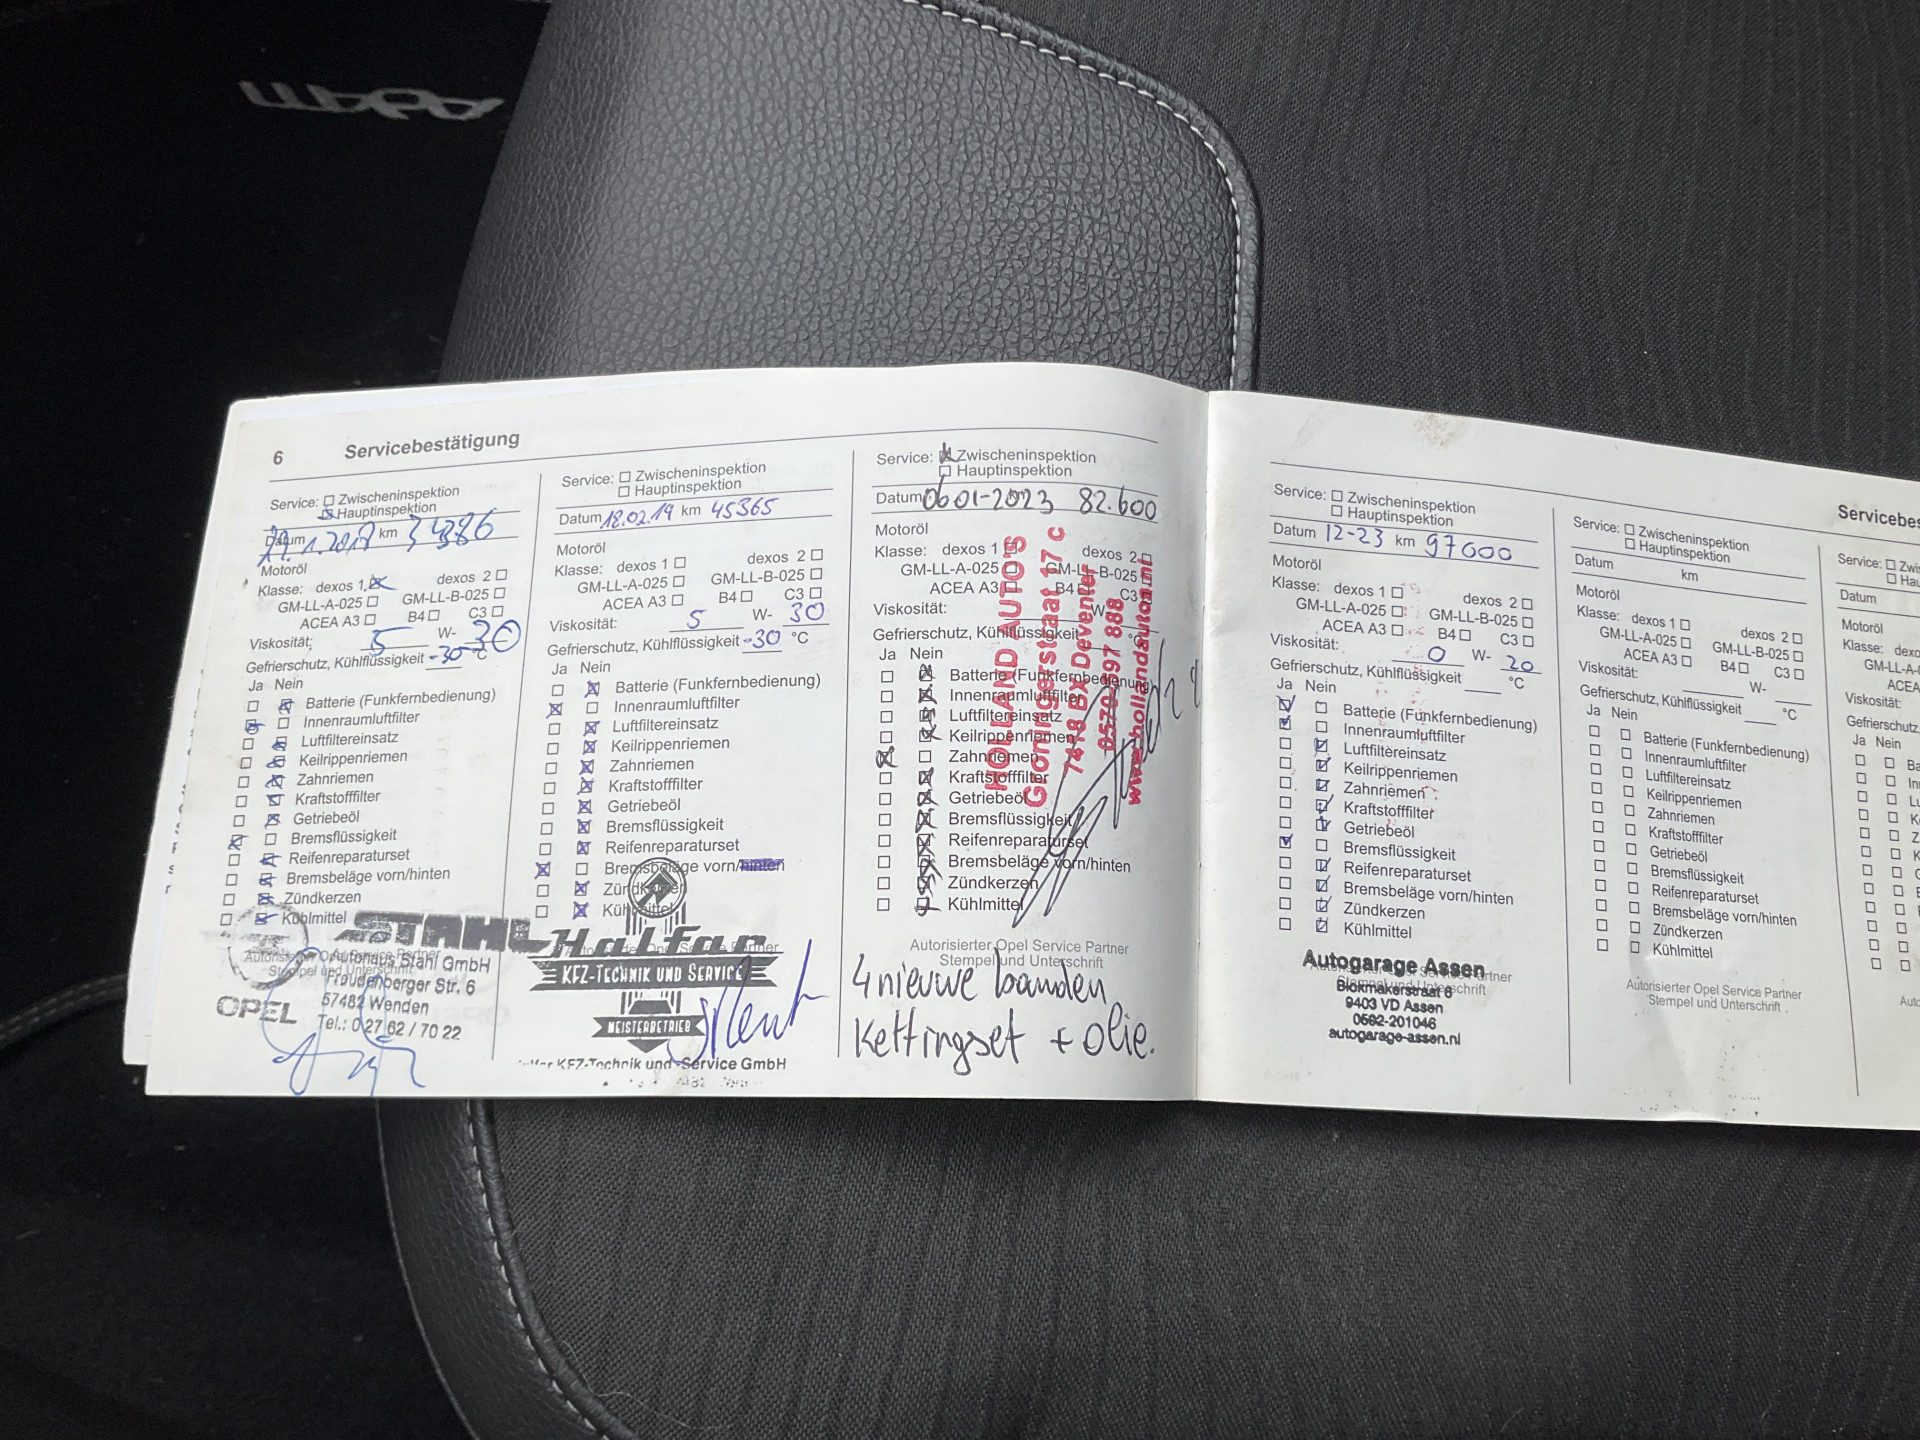 6 Servicebestätigung
Service: Zwischeninspektion
Hauptinspektion
Datum km
Motoröl
Klasse: dexos 1 dexos 2
GM-LL-A-025 GM-LL-B-025
ACEA A3 B4 C3
Viskosität: 5 W- 30
Gefrierschutz, Kühlflüssigkeit -30 °C
Ja Nein
Batterie (Funkfernbedienung)
Innenraumluftfilter
Luftfiltereinsatz
Keilrippenriemen
Zahnriemen
Kraftstofffilter
Getriebeöl
Bremsflüssigkeit
Reifenreparaturset
Bremsbeläge vorn/hinten
Zündkerzen
Kühlmittel
STAHL
Autorisierter Opel Service Partner
Stempel und Unterschrift
Autohaus Stahl GmbH
57482 Wenden
Tel.: 0 27 62 / 70 22
OPEL
Service: Zwischeninspektion
Hauptinspektion
Datum 18.02.19 km 45365
Motoröl
Klasse: dexos 1 dexos 2
GM-LL-A-025 GM-LL-B-025
ACEA A3 B4 C3
Viskosität: 5 W- 30
Gefrierschutz, Kühlflüssigkeit -30 °C
Ja Nein
Batterie (Funkfernbedienung)
Innenraumluftfilter
Luftfiltereinsatz
Keilrippenriemen
Zahnriemen
Kraftstofffilter
Getriebeöl
Bremsflüssigkeit
Reifenreparaturset
Bremsbeläge vorn/hinten
Zündkerzen
Kühlmittel
Halfar
KFZ-TECHNIK UND SERVICE
MEISTERBETRIEB
KFZ-Technik und -Service GmbH
Service: Zwischeninspektion
Hauptinspektion
Datum 06-01-2023 82.600
Motoröl
Klasse: dexos 1 dexos 2
GM-LL-A-025 GM-LL-B-025
ACEA A3 B4 C3
Viskosität: W-
Gefrierschutz, Kühlflüssigkeit °C
Ja Nein
Batterie (Funkfernbedienung)
Innenraumluftfilter
Luftfiltereinsatz
Keilrippenriemen
Zahnriemen
Kraftstofffilter
Getriebeöl
Bremsflüssigkeit
Reifenreparaturset
Bremsbeläge vorn/hinten
Zündkerzen
Kühlmittel
HOLLAND AUTO'S
17 c
7418 BX Deventer
0570-597 888
Autorisierter Opel Service Partner
Stempel und Unterschrift
4 nieuwe banden
Kettingset + olie.
Servicebes
Service: Zwischeninspektion
Hauptinspektion
Datum 12-23 km 97000
Motoröl
Klasse: dexos 1 dexos 2
GM-LL-A-025 GM-LL-B-025
ACEA A3 B4 C3
Viskosität: 0 W- 20
Gefrierschutz, Kühlflüssigkeit °C
Ja Nein
Batterie (Funkfernbedienung)
Innenraumluftfilter
Luftfiltereinsatz
Keilrippenriemen
Zahnriemen
Kraftstofffilter
Getriebeöl
Bremsflüssigkeit
Reifenreparaturset
Bremsbeläge vorn/hinten
Zündkerzen
Kühlmittel
Autogarage Assen
Blokmakerstraat 6
9403 VD Assen
0592-201046
autogarage-assen.nl
Service: Zwischeninspektion
Hauptinspektion
Datum km
Motoröl
Klasse: dexos 1 dexos 2
GM-LL-A-025 GM-LL-B-025
ACEA A3 B4 C3
Viskosität: W-
Gefrierschutz, Kühlflüssigkeit °C
Ja Nein
Batterie (Funkfernbedienung)
Innenraumluftfilter
Luftfiltereinsatz
Keilrippenriemen
Zahnriemen
Kraftstofffilter
Getriebeöl
Bremsflüssigkeit
Reifenreparaturset
Bremsbeläge vorn/hinten
Zündkerzen
Kühlmittel
Autorisierter Opel Service Partner
Stempel und Unterschrift
Service: Zwi
Datum
Motoröl
Klasse: dexo
GM-LL-A-
ACE
Viskosität:
Gefrierschutz,
Ja Nein